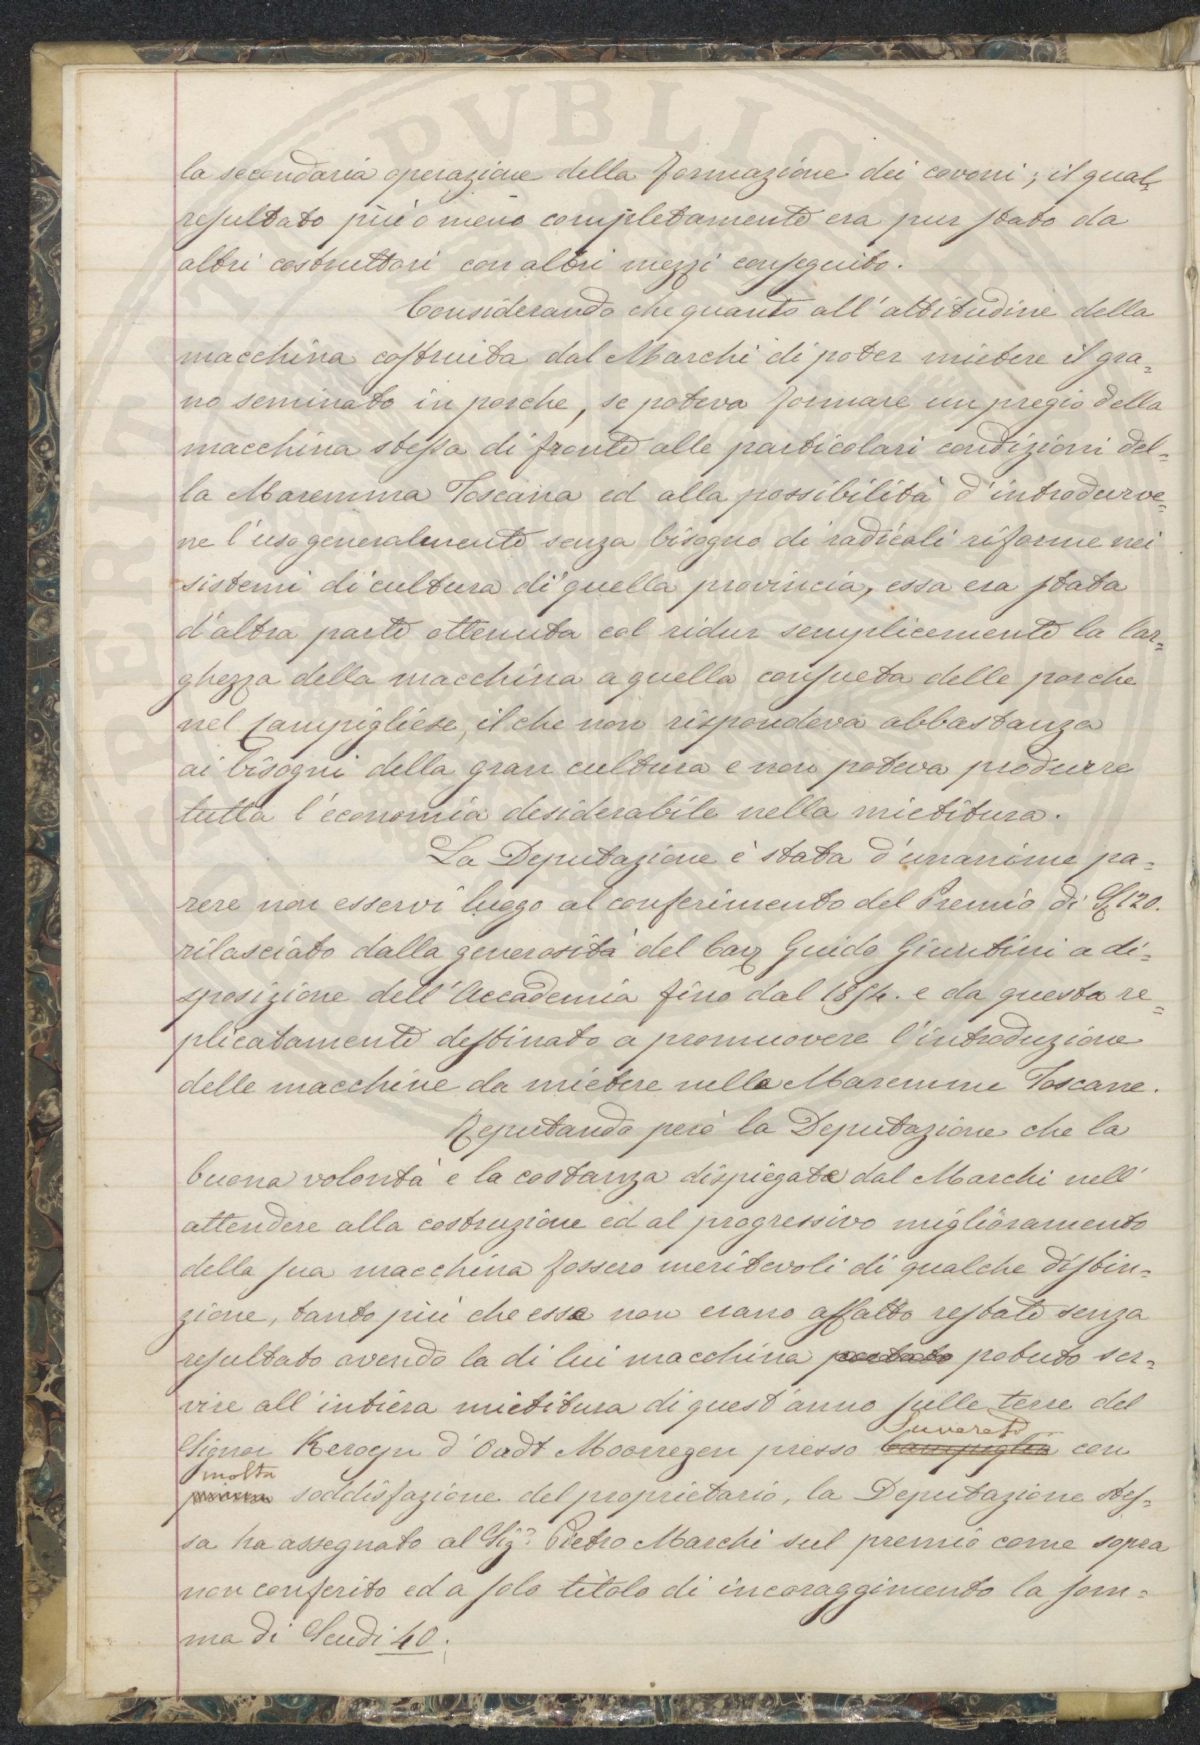 la secondaria operazione della formazione dei covoni; il qual
resultato più o meno completamente era pur stato da
altri costruttori con altri mezzi conseguito.
Considerando che quanto all'attitudine della
macchina costruita dal Marchi di poter mietere il gra=
no seminato in porche, se poteva formare un pregio della
macchina stessa di fronte alle particolari condizioni del=
la Maremma Toscana ed alla possibilità d'introdurve=
ne l'uso generalmente senza bisogno di radicali riforme nei
sistemi di cultura di quella provincia, essa era stata
d'altra parte ottenuta col ridur semplicemente la lar=
ghezza della macchina a quella consueta delle porche
nel Campigliese, il che non rispondeva abbastanza
ai bisogni della gran cultura e non poteva produrre
tutta l'economia desiderabile nella mietitura.
La Deputazione è stata d'unanime pa=
rere non esservi luogo al conferimento del Premio di 120.
rilasciato dalla generosità del Cav Guido Giuntini a di=
sposizione dell'Accademia fino dal 1854. e da questa re=
plicatamente destinato a promuovere l'introduzione
delle macchine da mietere nelle Maremme Toscane.
Reputando però la Deputazione che la
buona volontà e la costanza dispiegate dal Marchi nell'
attendere alla costruzione ed al progressivo miglioramento
della sua macchina fossero meritevoli di qualche distin=
zione, tanto più che esse non erano affatto restate senza
resultato avendo la di lui macchina potuto ser=
vire all'intiera mietitura di quest'anno sulle terre del
Suvereto
Signor Kerocyn d'Oudt Moorregen presso Campiglia con
molta
piena soddisfazione del proprietario, la Deputazione stes=
sa ha assegnato al Sig.r Pietro Marchi sul premio come sopra
non conferito ed a solo titolo di incoraggimento la som=
ma di Scudi 40.